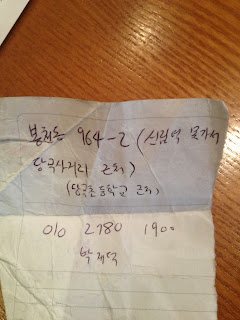 봉천동 964-2 (신림역 못가서
당곡사거리 근처)
(당곡초등학교 근처)
010 2780 1900
박재덕